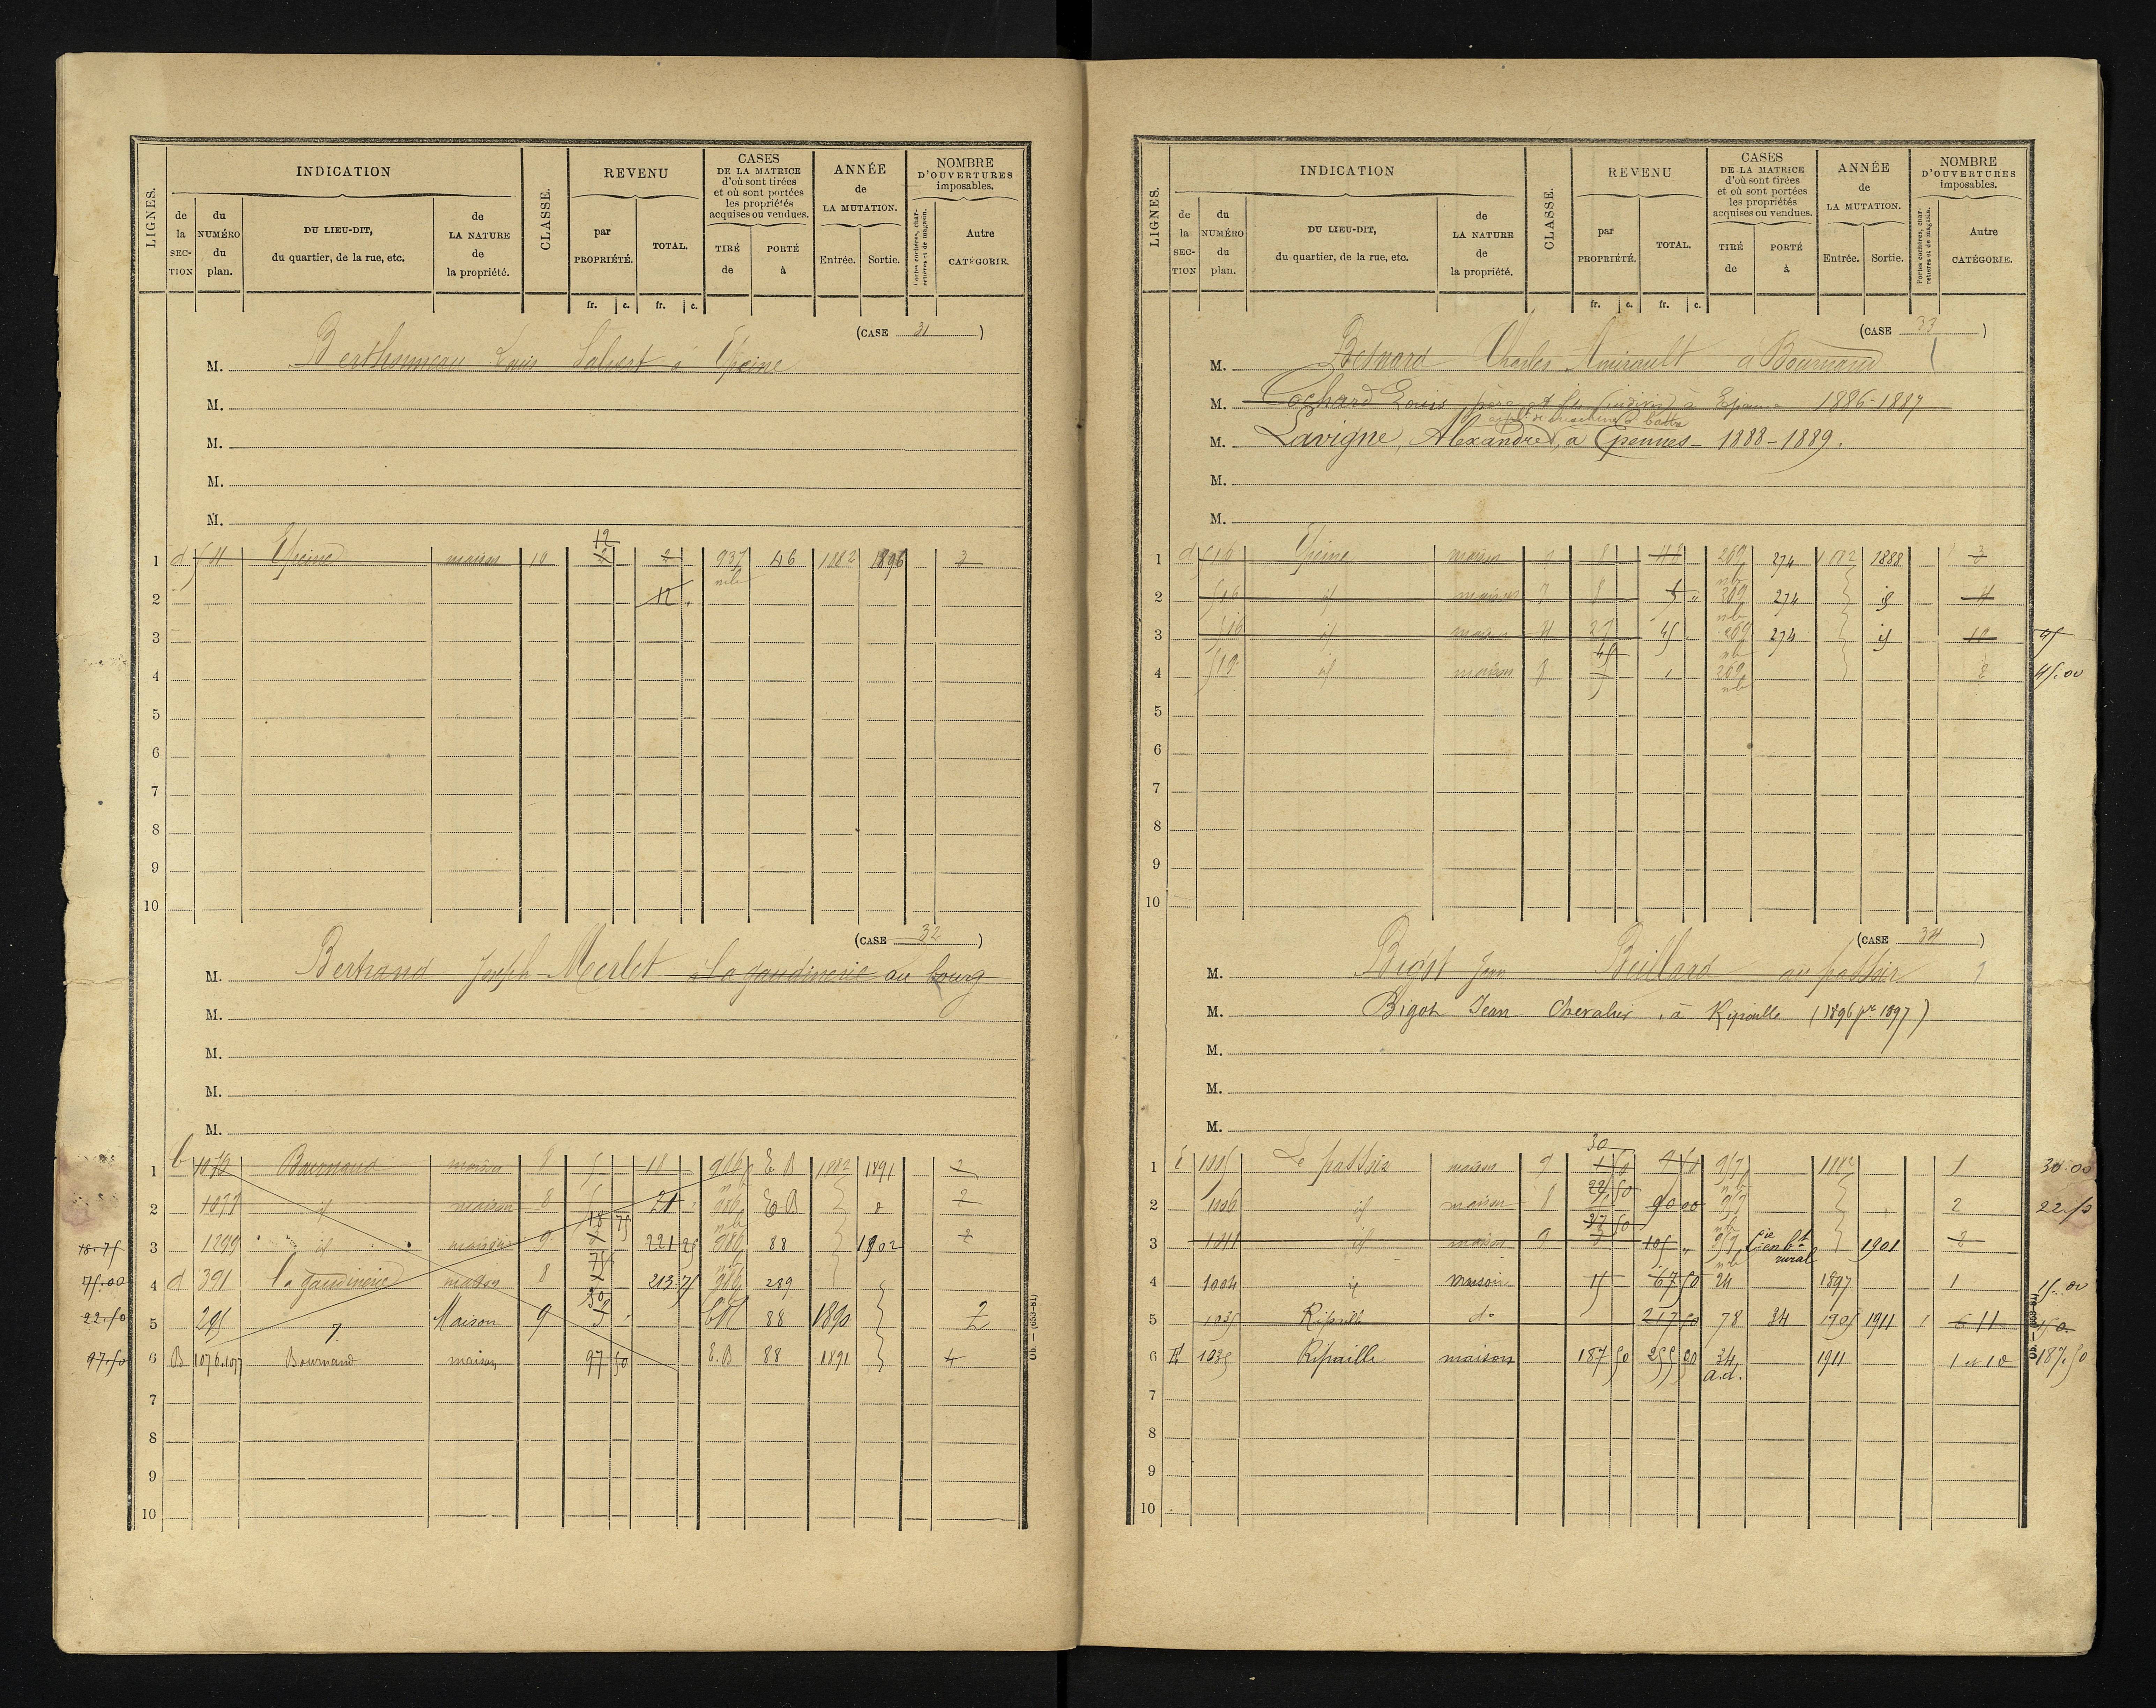 LIGNES.
INDICATION
de la SECTION
du NUMÉRO du plan.
DU LIEU-DIT, du quartier, de la rue, etc.
de LA NATURE de la propriété.
CLASSE.
REVENU
par PROPRIÉTÉ.
TOTAL.
fr. c. fr. c.
CASES DE LA MATRICE d'où sont tirées et où sont portées les propriétés acquises ou vendues.
TIRÉ de
PORTÉ à
ANNÉE de LA MUTATION.
Entrée. Sortie.
NOMBRE D'OUVERTURES imposables.
Portes cochères, charretières et de magasin.
Autre CATÉGORIE.
(CASE 31)
M. Berthonneau Louis à Epeine
M.
M.
M.
M.
12
1 d 511 Epeine maison 10 2 2 937 46 1882 1896 3
nb
2 12
3
4
5
6
7
8
9
10
(CASE 32)
M. Bertrand Joseph Merlet à la gaudinerie au bourg
M.
M.
M.
M.
1 b 1076 Bournand maison 8 5 18 986 E. B 1882 1891 2
2 1077 id maison 8 5 21 986 E B 2
18 75
18.75 3 1299 id maison 9 221 25 986 88 1902 2
75
75.00 4 d 391 la gaudinerie maison 8 213.75 986 289
22.50 5 295 Maison 9 88 1890 2
97.50 6 B 1076.1077 Bournand maison 97 50 E.B 88 1891 4
7
8
9
10
Ob. — (653-81)
LIGNES.
INDICATION
de la SECTION
du NUMÉRO du plan.
DU LIEU-DIT, du quartier, de la rue, etc.
de LA NATURE de la propriété.
CLASSE.
REVENU
par PROPRIÉTÉ.
TOTAL.
fr. c. fr. c.
CASES DE LA MATRICE d'où sont tirées et où sont portées les propriétés acquises ou vendues.
TIRÉ de
PORTÉ à
ANNÉE de LA MUTATION.
Entrée. Sortie.
NOMBRE D'OUVERTURES imposables.
Portes cochères, charretières et de magasin.
Autre CATÉGORIE.
(CASE 33)
M. Besnard Charles Amirault à Bournand
M. Cochard Louis père et fils (indivis) à 1886-1887
M. Lavigne, Alexandre, à Epennes - 1888-1889.
M.
M.
1 d 516 Epeine maison 7 8 48 269 274 1882 1888 3
nb
2 516 id maison 7 8 5 269 274 id 4
nb
3 516 id maison 4 27 45 269 274 id 10 45
nb
4 519 id maison 8 1 269 2 45.00
nb
5
6
7
8
9
10
(CASE 34)
M. Bigot Jean Beillard au passoir
M. Bigot Jean Chevalier, à Ripaille (1896 pr 1897)
M.
M.
M.
30
1 E 1005 Le passoir maison 9 957 1882 1 30.00
22 50
2 1006 id maison 8 90 00 957 2 22.50
37 50
3 1011 id maison 9 105 957 en bt rural 1901 2
4 1004 id maison 15 67 50 24 1897 1 15.00
5 1035 Ripaille do 217 50 78 34 1905 1911 1 6 11 150.
6 E 1035 Ripaille maison 187 50 255 00 34 1911 1 et 10 187.50
a.d.
7
8
9
10
Ob. — (653-81)